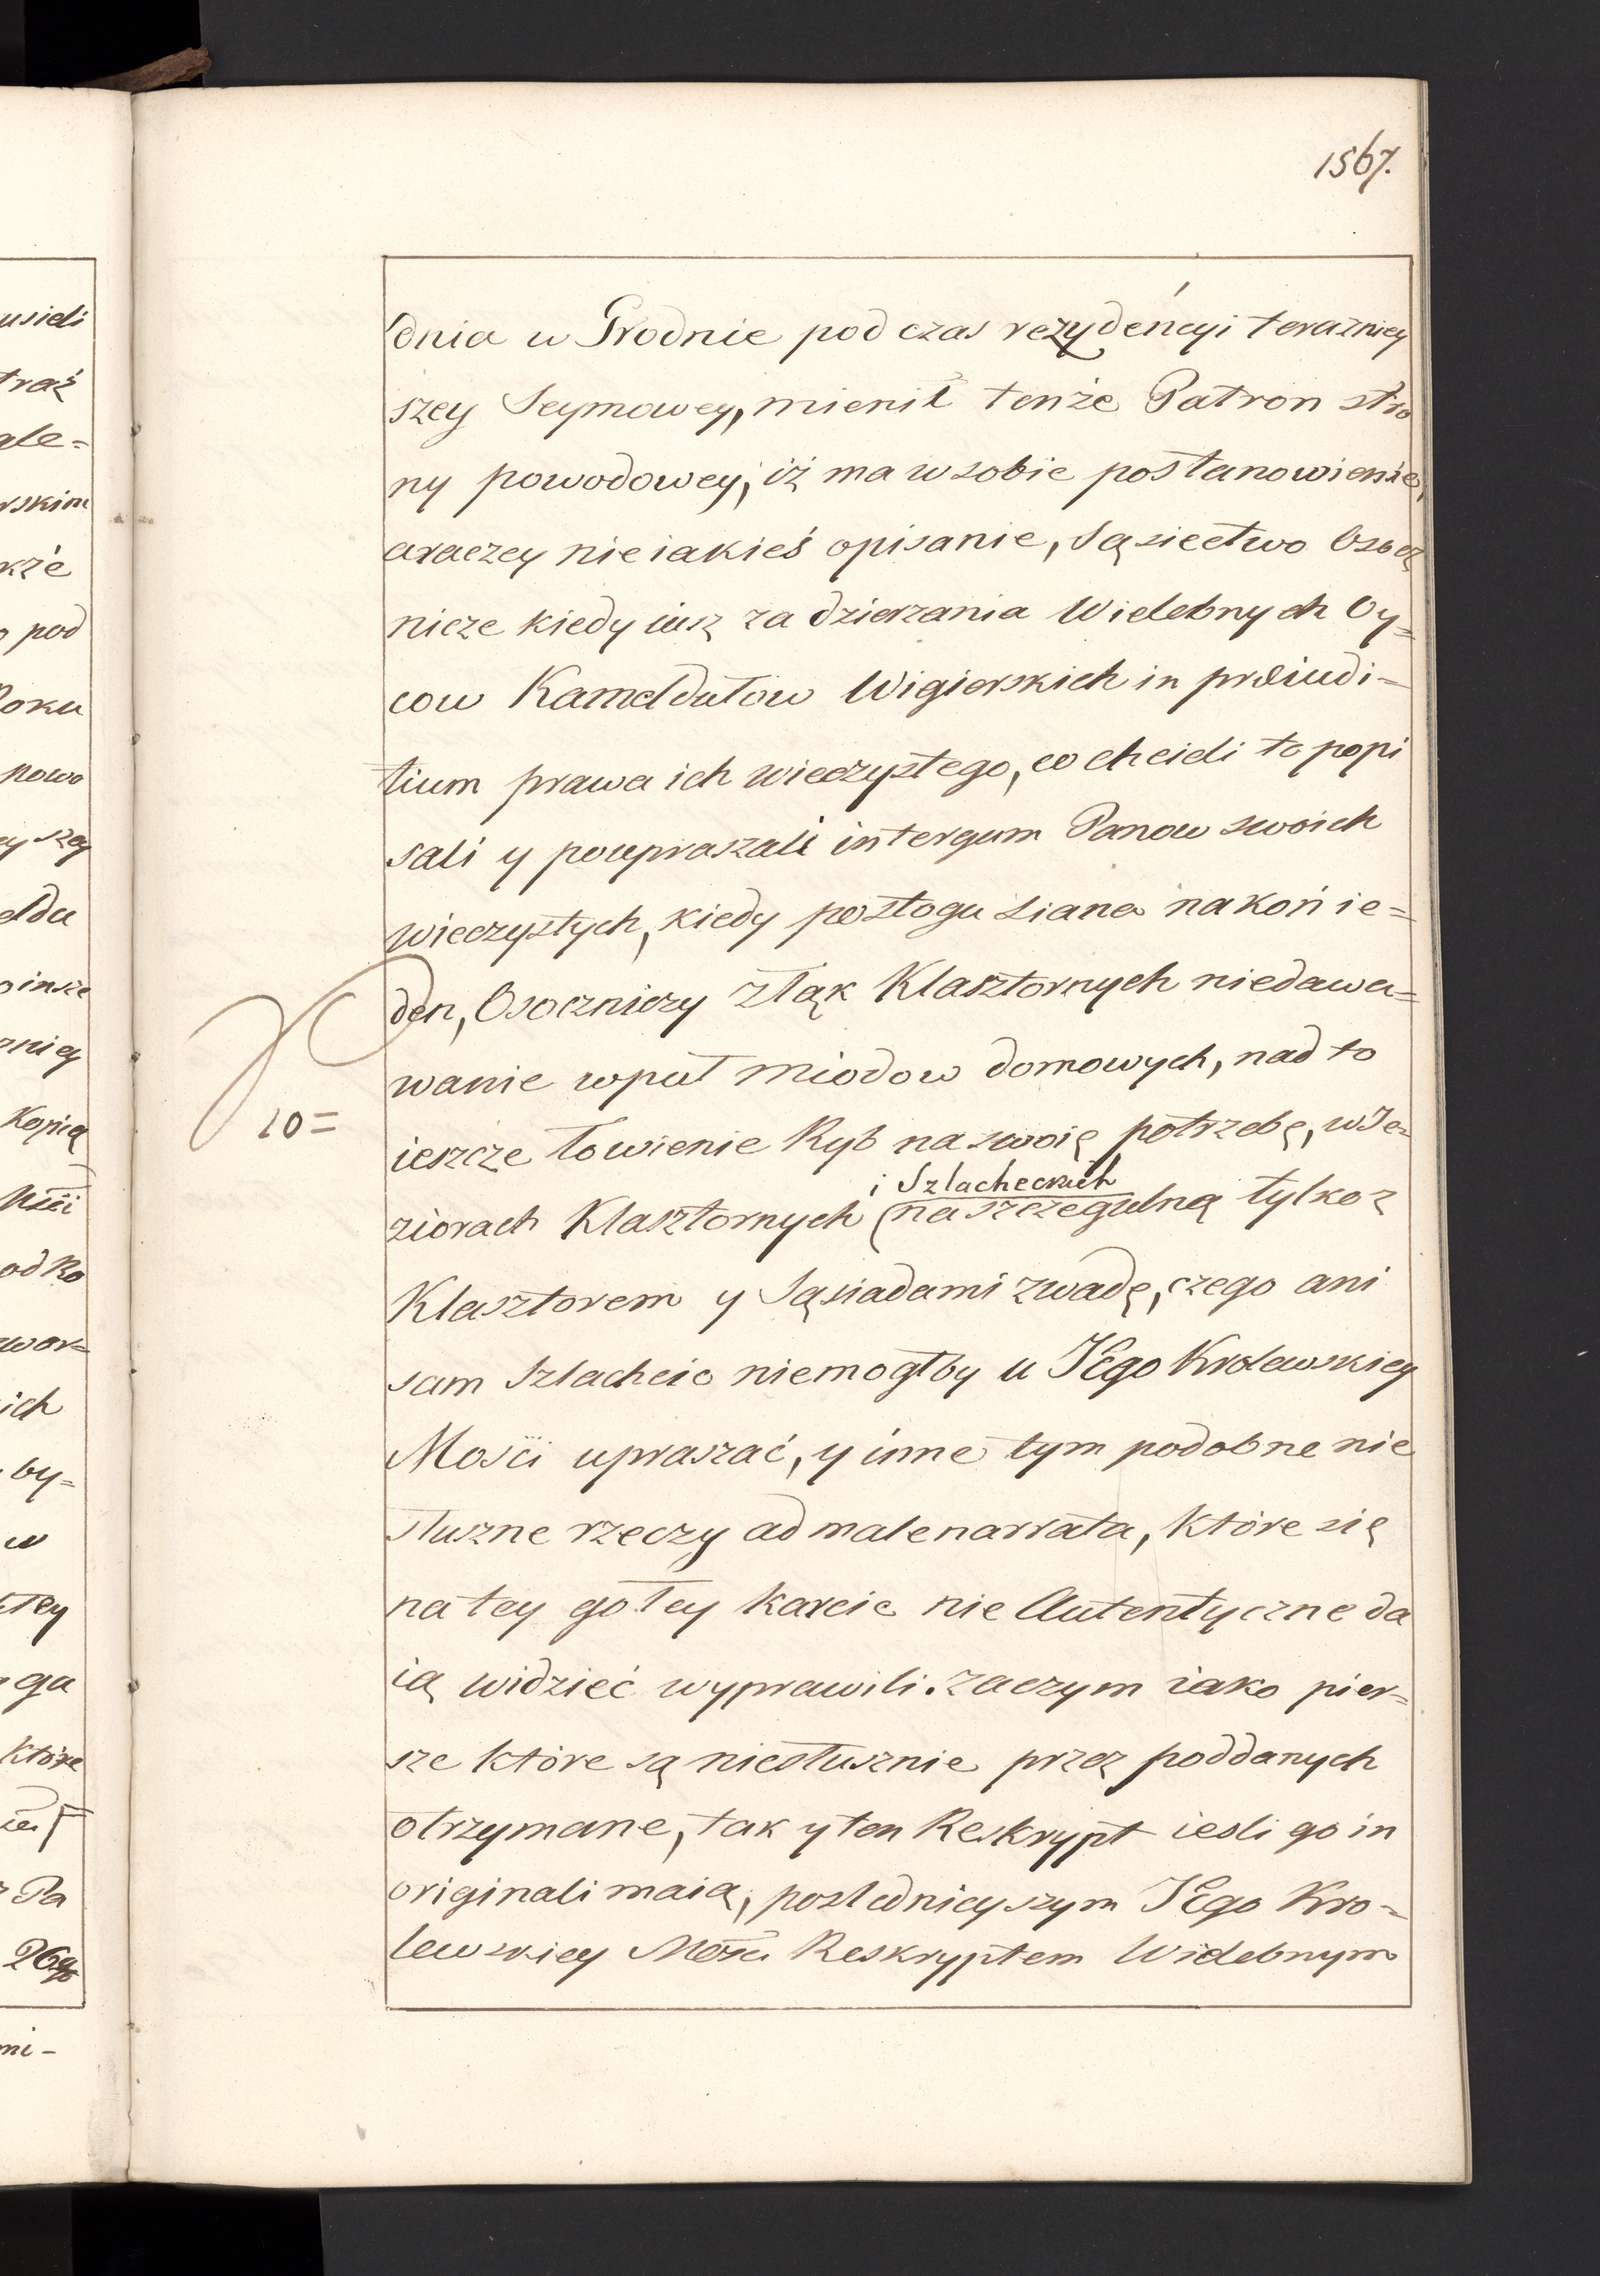 1567.
dnia w Grodnie pod czas rezydencyi terazniey
szey Seymowey, mienił tenże Patron stro
ny powodowey, iż ma w sobie postanowienie,
araczey nieiakieś opisanie, Sąsiectwo Osocz
nicze kiedy iusz za dzierzania Wielebnych Oy=
cow Kameldułow Wigierskich in præiudi=
tium prawa ich wieczystego, co chcieli to popi
sali y poupraszali intergum Panow swoich
wieczystych, kiedy posłogu siana na koń ie=
den, Osoczniczy z łąk Klasztornych niedawa=
wanie wpuł miodow domowych, nad to
10=
ieszcze łowienie Ryb na swoię potrzebę, w Ie=
i Szlacheckich
ziorach Klasztornych (na szczegulną tylko z
Klasztorem y Sąsiadami zwadę, czego ani
sam Szlachcic niemogłby u JEgo Krolewskiey
Mości upraszać, y inne tym podobne nie
słuszne rzeczy ad male narrata, które się
na tey gołey karcie nie Autentyczne da
ią widzieć wyprawili. zaczym iako pier=
sze które są niesłusznie przez poddanych
otrzymane, tak y ten Reskrypt iesli go in
originali maią, poslednieyszym JEgo Kro=
lewskiey Mości Reskryptem Wielebnym
usieli
traż
ale=
rskim
kże
o pod
Roku
nowo
ey szey
eldu
o insze
zniey
Kopią
Mści
od Ro
zwor=
ich
by=
w
łey
ga
które
Pa
26go
mi-